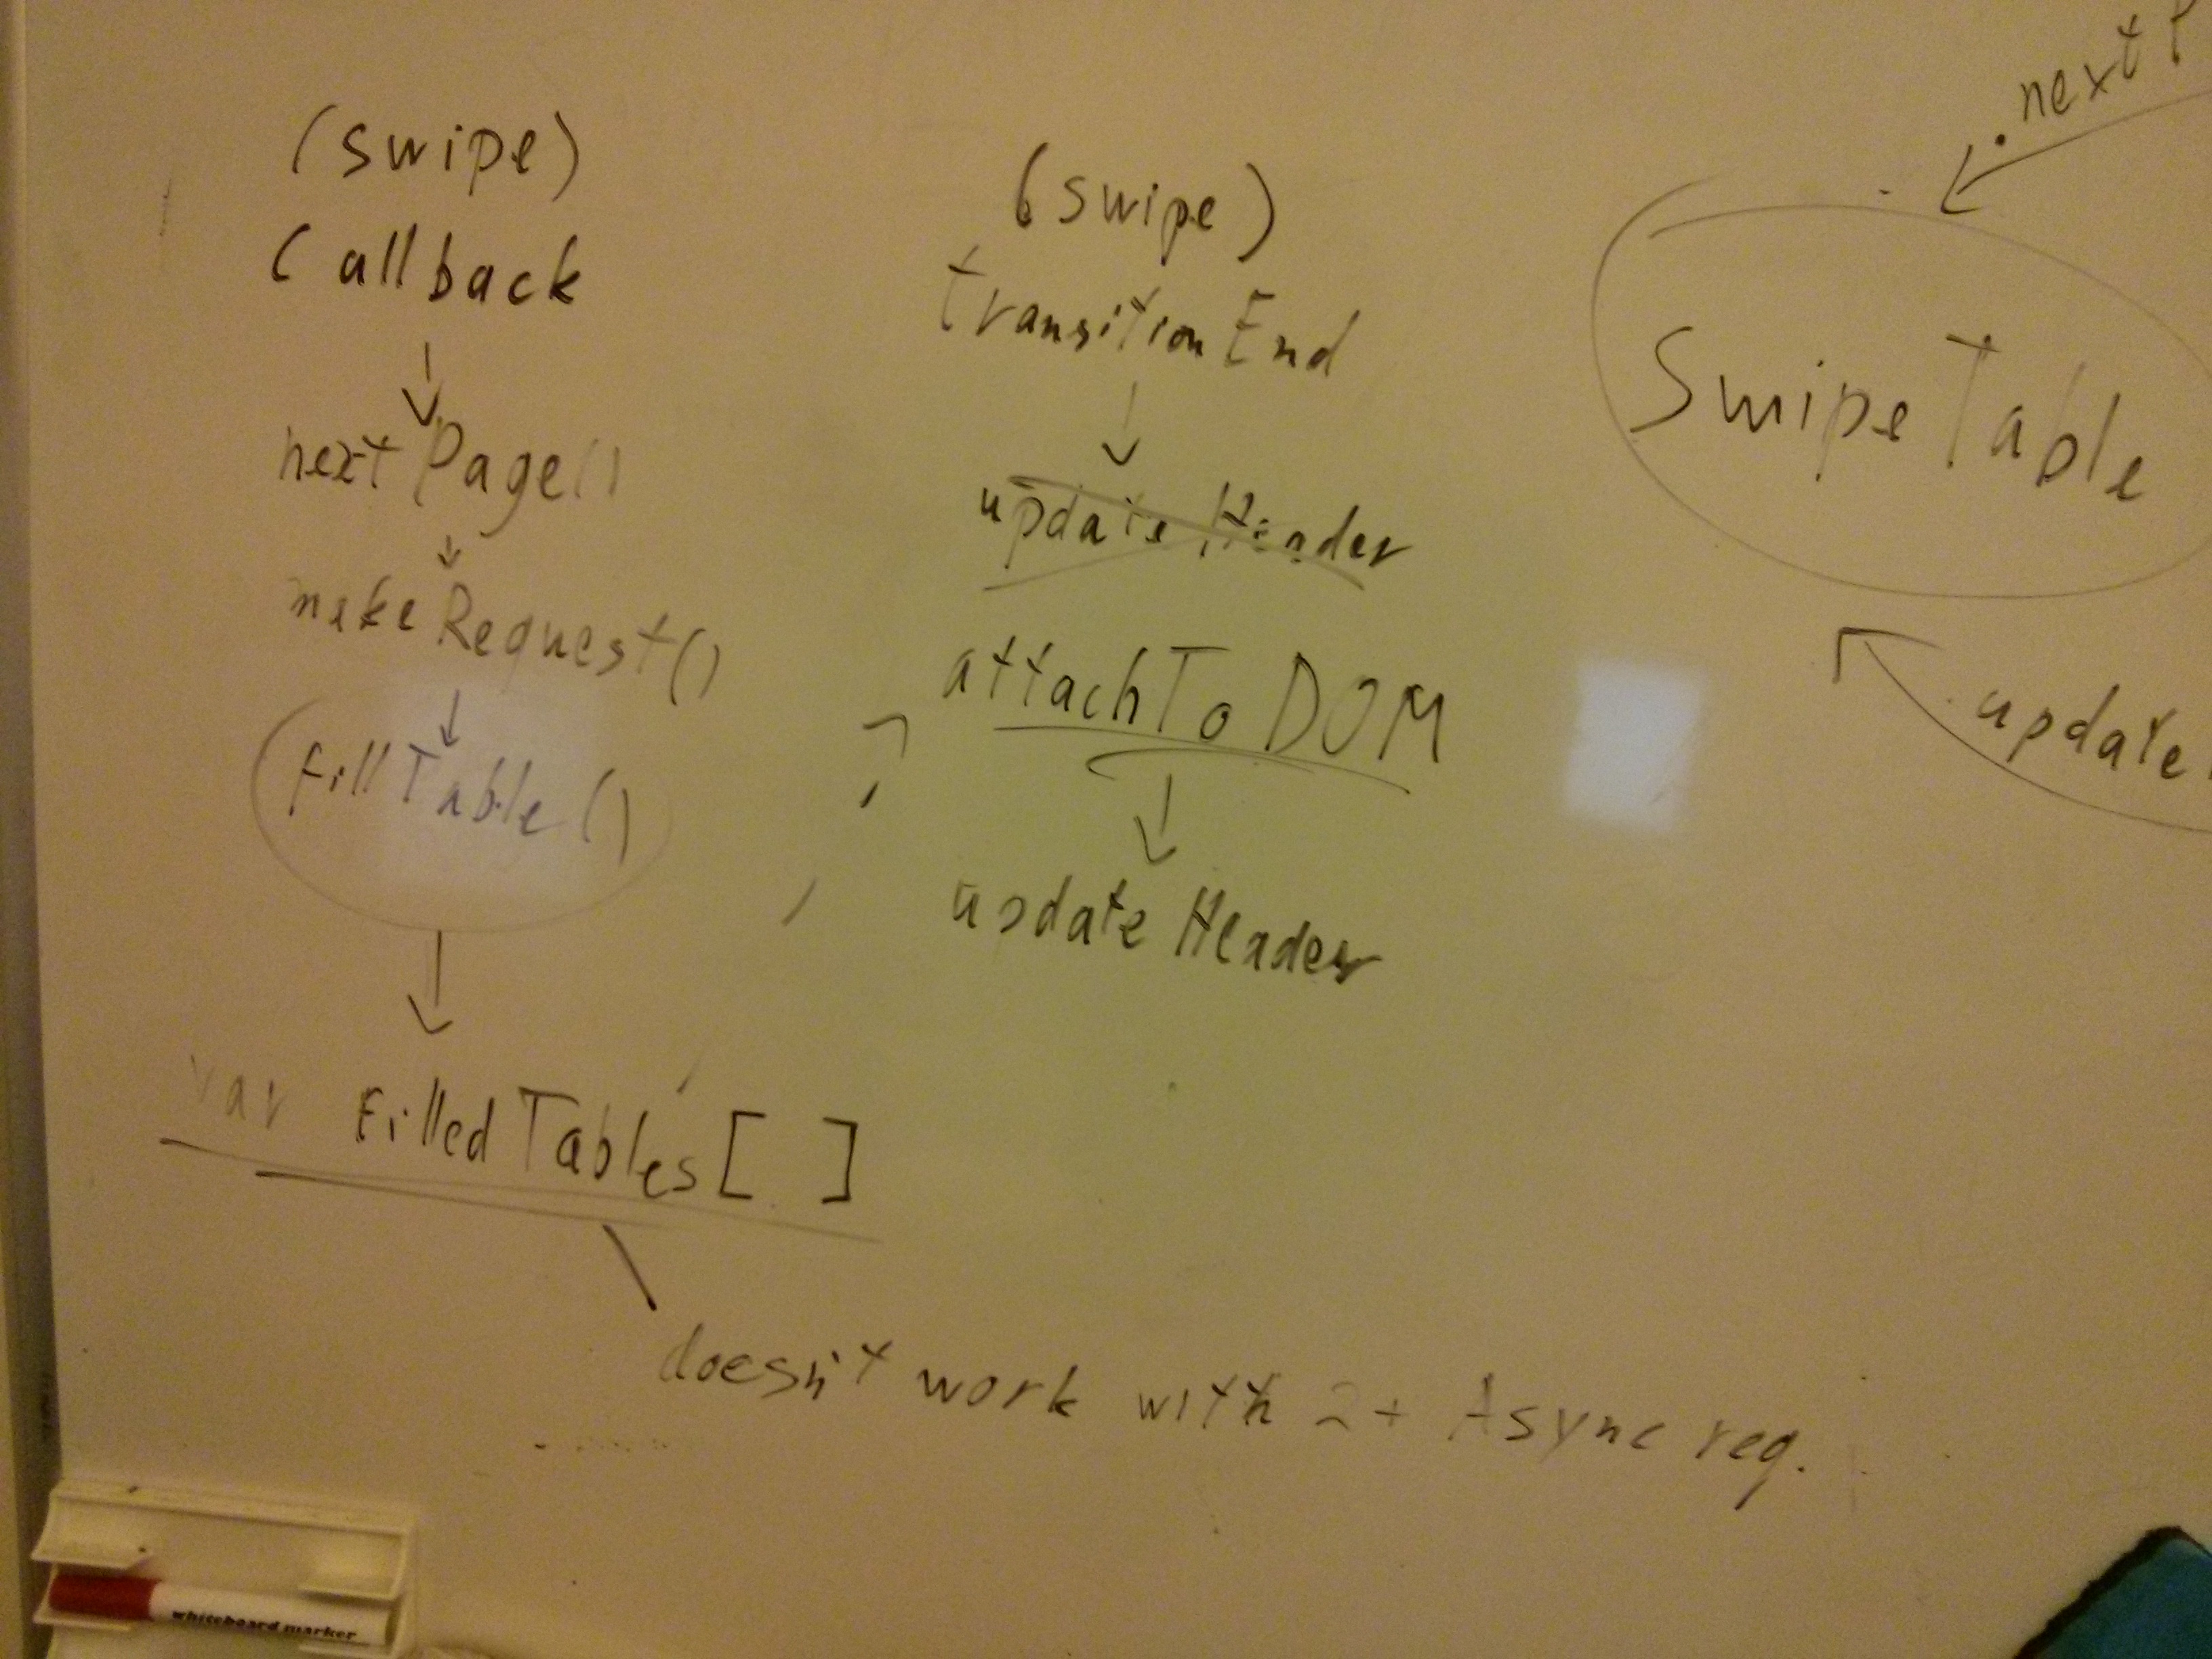 (swipe)
Callback
nextPage()
makeRequest()
fillTable()
var FilledTables[ ]
doesn't work with 2+ Async req.
(swipe)
transitionEnd
updateHeader
attachToDOM
updateHeader
.next
SwipeTable
update
whiteboard marker